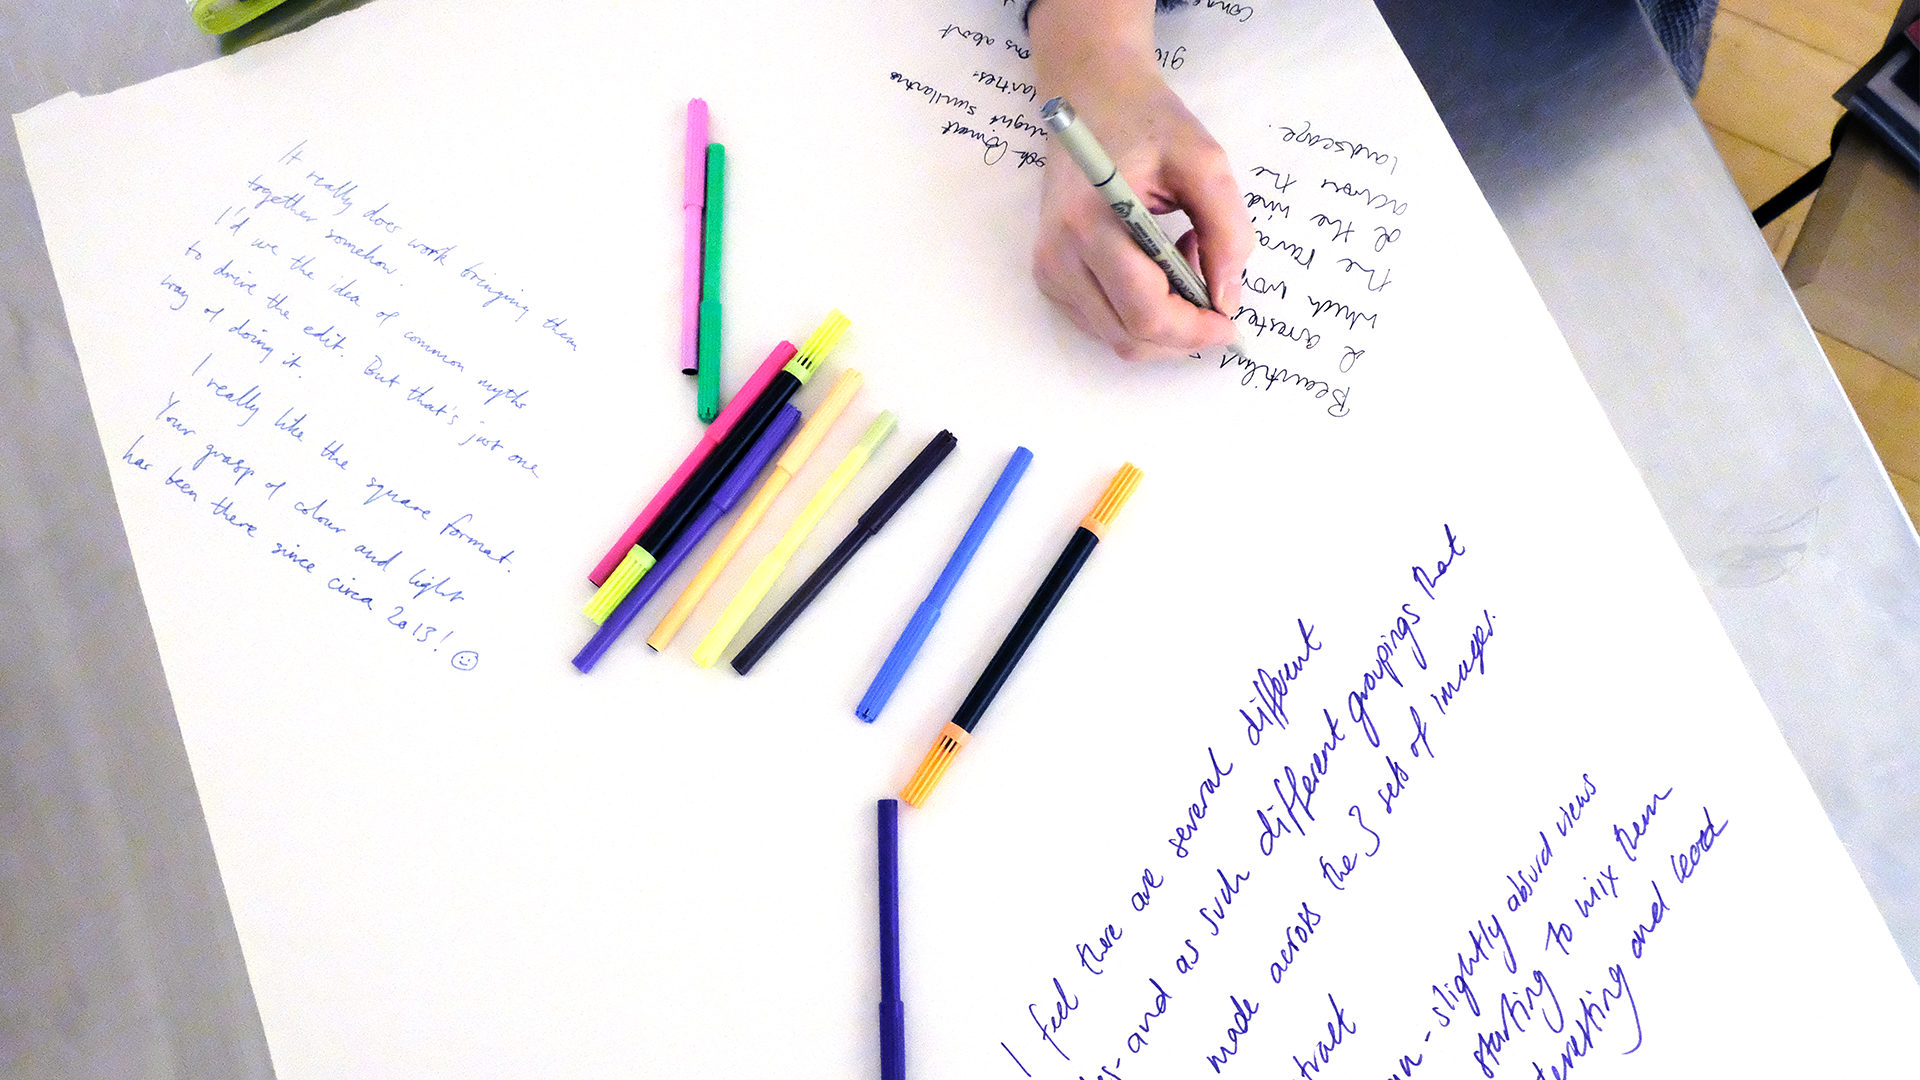 It really does work bringing them
together somehow.
I'd use the idea of common myths
to drive the edit. But that's just one
way of doing it.
I really like the square format.
Your grasp of colour and light
has been there since circa 2013! ☺
Beautiful
& arrestel
which wo
the
& the wind
across the
landscape.
about
I feel there are several different
and as such different groupings that
made across the 3 sets of images.
tract
- slightly absurd views
starting to mix them
teresting and lead